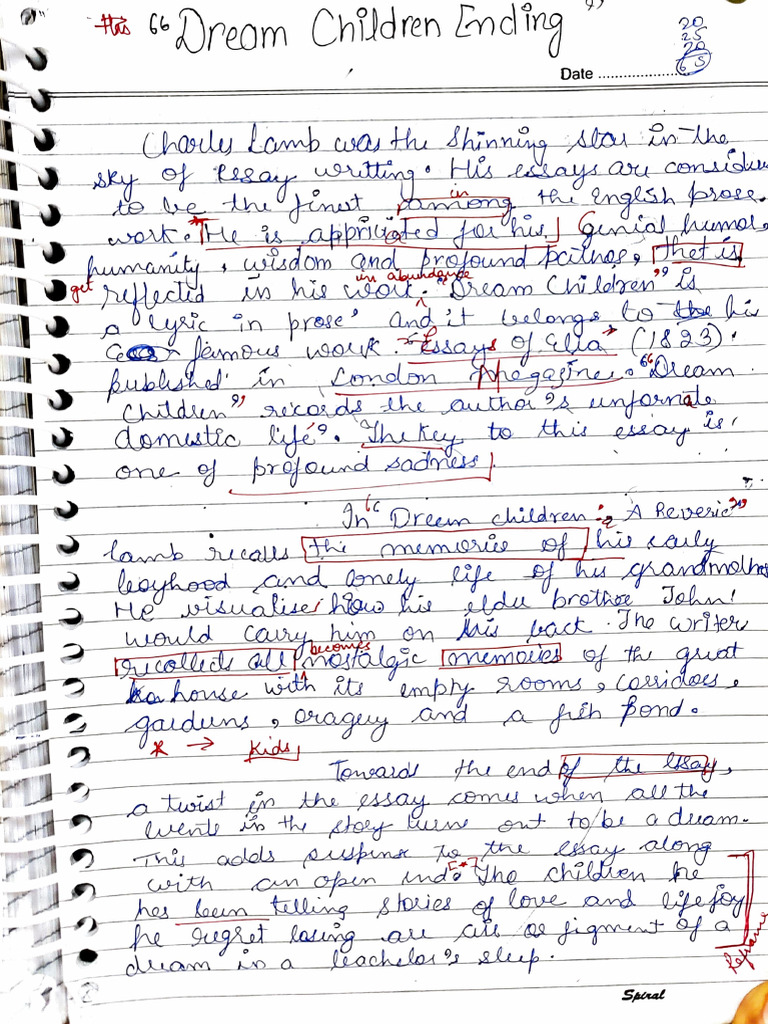 the "Dream Children Ending"
20
25
20
65
Date ....................
Charles Lamb was the shinning star in the
sky of Essay writting. His essays are consider
to be the finest among in the English prose
work. * He is appriciated for his Genial humor,
humanity, wisdom and profound pathos, that is
get reflected in his work. in abundance "Dream Children" is
a lyric in prose' and it belongs to the his
famous work. "Essays of Elia" (1823).
published in London Magazine. "Dream
Children" records the author's unfornate
domestic life. The key to this essay is
one of profound sadness.
In "Dream children: A Reverie"
Lamb recalls the memories of his early
boyhood and lonely life of his grandmother
He visualise how his elder brother John
would carry him on his back. The writer
recollects all becomes nostalgic memories of the great
house with its empty rooms, corridoes,
gardens, oragery and a fish pond.
* → Kids
Towards the end of the essay,
a twist in the essay comes when all the
events in the story turns out to be a dream.
This adds suspense to the essay along
with an open end. [*] The children he
has been telling stories of love and life joy
he regret losing are air or figment of a
dream in a bachelor's sleep.
Reframe
Spiral